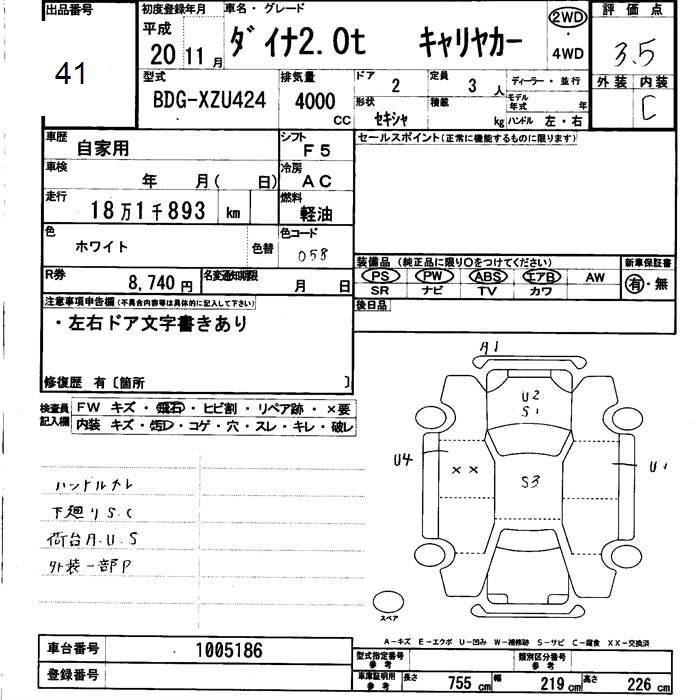 出品番号
41
初度登録年月
平成
20 11 月
車名・グレード
ダイナ2.0t キャリヤカー
2WD
・
4WD
評価点
3.5
外装 内装
C
型式
BDG-XZU424
排気量
4000 CC
ドア 2
定員 3 人
ディーラー・並行
形状 セキシャ
積載 kg
モデル年式 年
ハンドル 左・右
車歴 自家用
シフト F5
セールスポイント(正常に機能するものに限ります)
車検 年 月( 日)
冷房 AC
走行 18万1千893 km
燃料 軽油
色 ホワイト 色替
色コード 058
R券 8,740 円
名変通知期限 月 日
装備品 (純正品に限り〇をつけてください)
新車保証書
PS PW ABS エアB AW
有・無
SR ナビ TV カワ
後日品
注意事項申告欄(不具合内容等は具体的に記入して下さい)
・左右ドア文字書きあり
修復歴 有〔箇所 〕
検査員記入欄
FW キズ・飛石・ヒビ割・リペア跡・×要
内装 キズ・汚レ・コゲ・穴・スレ・キレ・破レ
ハンドルスレ
下廻りS.C
荷台A.U.S
外装一部P
A1
U2
S1
U4
××
S3
U1
スペア
A-キズ E-エクボ U-凹み W-補修跡 S-サビ C-腐食 XX-交換済
車台番号 1005186
登録番号
型式指定番号 参考
類別区分番号 参考
車庫証明用 参考
長さ 755 cm 幅 219 cm 高さ 226 cm